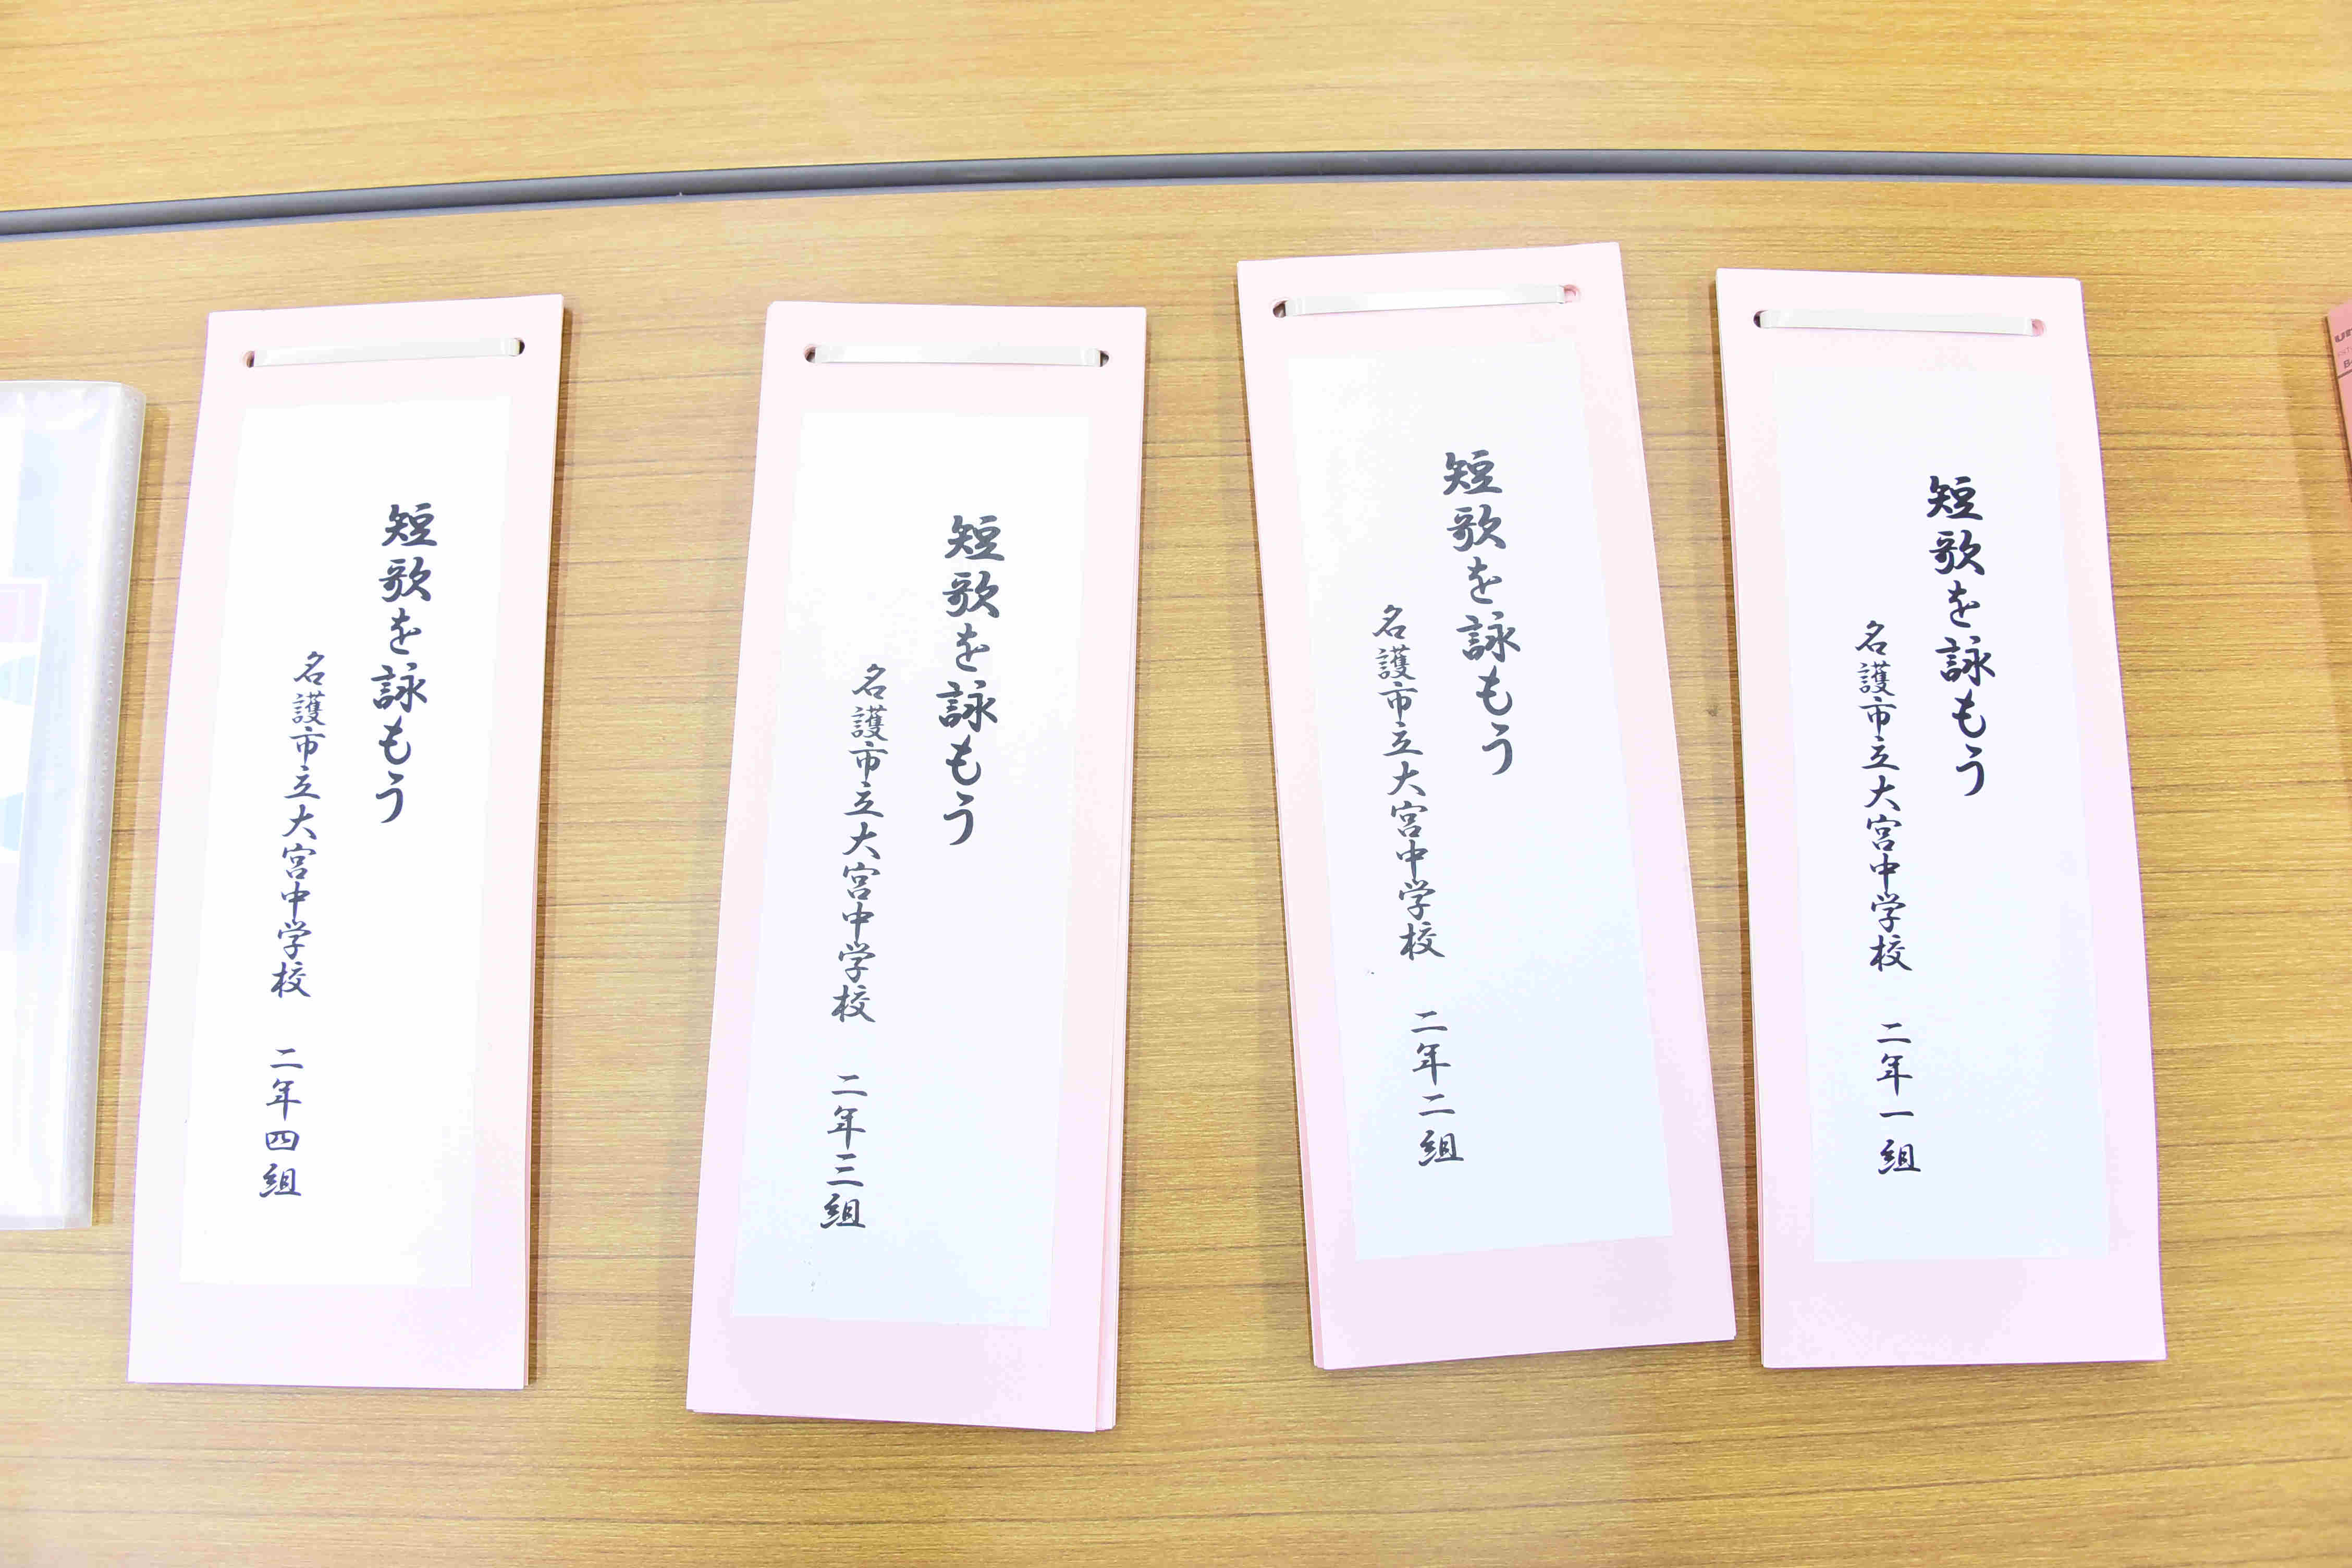 短歌を詠もう
名護市立大宮中学校 二年一組
短歌を詠もう
名護市立大宮中学校 二年二組
短歌を詠もう
名護市立大宮中学校 二年三組
短歌を詠もう
名護市立大宮中学校 二年四組